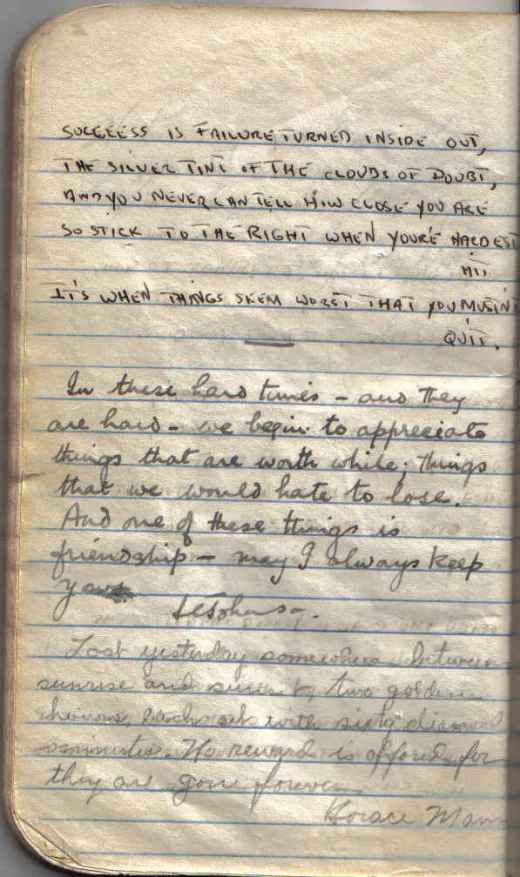 SUCCEESS IS FAILURE TURNED INSIDE OUT,
THE SILVER TINT OF THE CLOUDS OF DOUBT,
AND YOU NEVER CAN TELL HOW CLOSE YOU ARE
SO STICK TO THE RIGHT WHEN YOU'RE HARDEST
HIT
IT'S WHEN THINGS SEEM WORST THAT YOU MUSTN'T
QUIT.
In these hard times – and they
are hard – we begin to appreciate
things that are worth while; things
that we would hate to lose.
And one of these things is
friendship – may I always keep
yours
Lost yesterday somewhere between
sunrise and sunset, two golden
hours, each set with sixty diamond
minutes. No reward is offered for
they are gone forever
Horace Mann